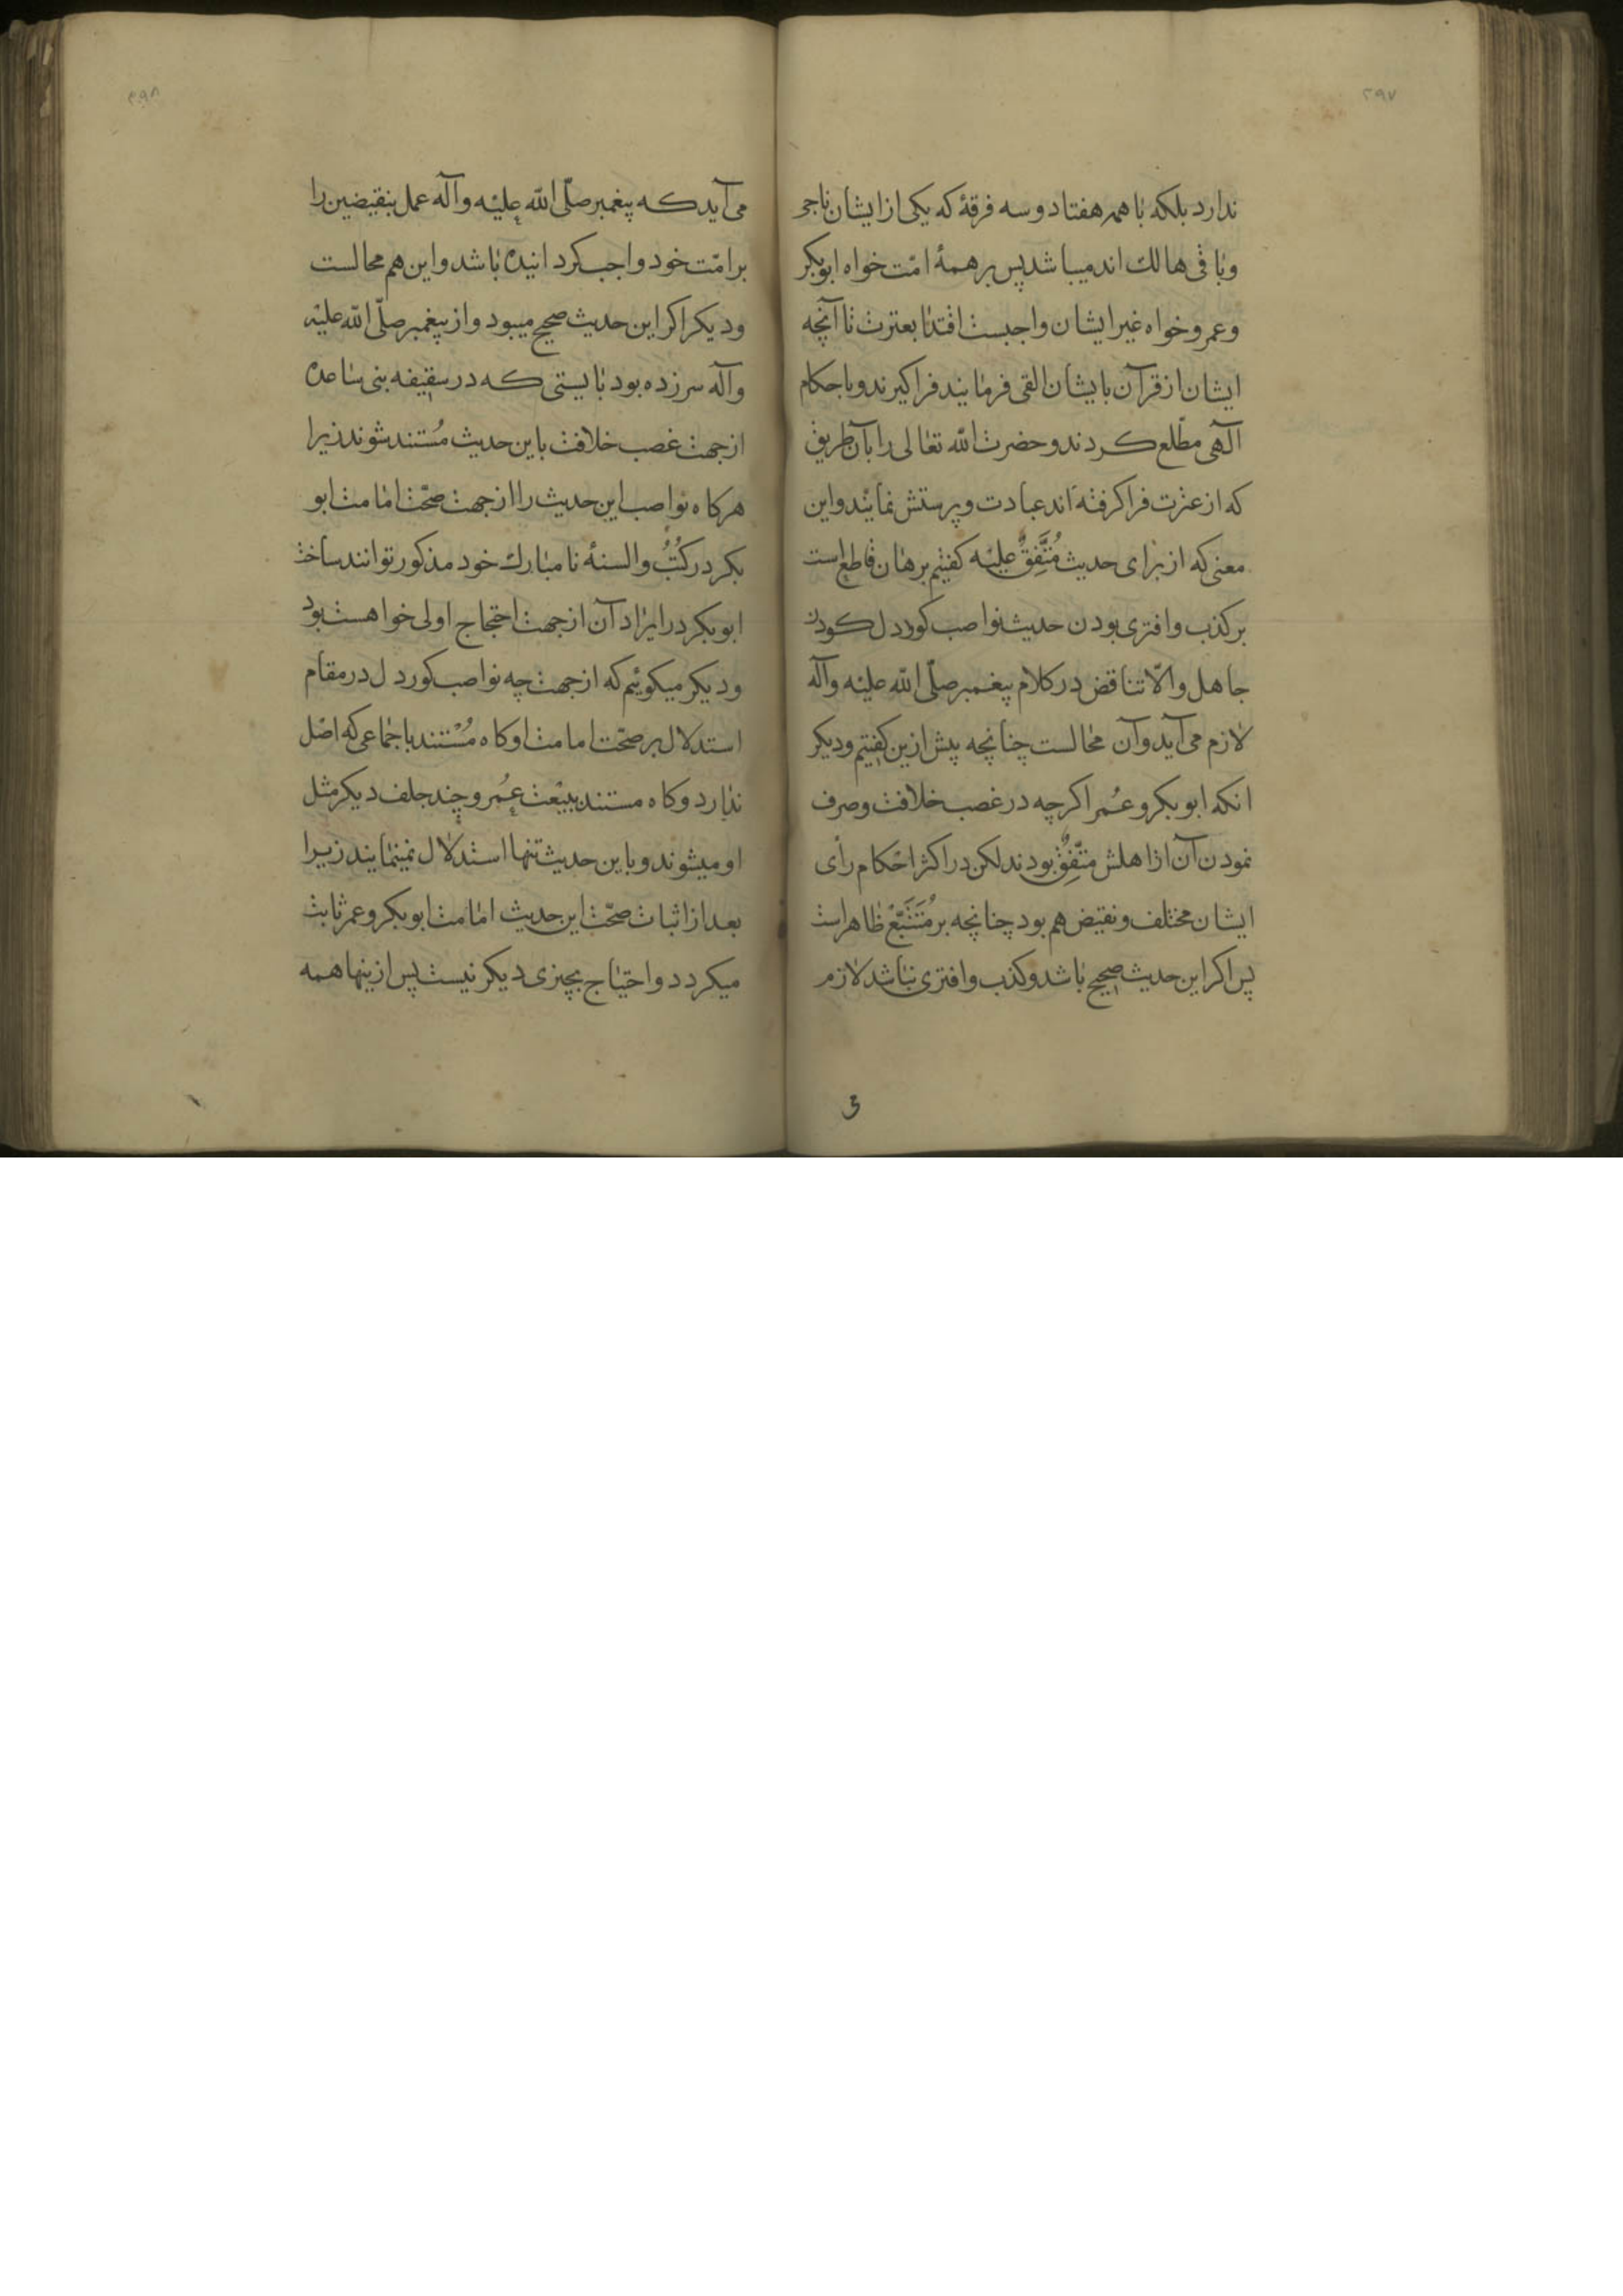 ۲۹۷
ندارد بلکه با همه هفتاد و سه فرقهٔ که یکی از ایشان ناجی
و باقی هالک اند میباشد پس بر همهٔ امّت خواه ابوبکر
و عمر و خواه غیر ایشان واجبست اقتدا بعترت تا آنچه
ایشان از قرآن بایشان القی فرمایند فراکیرند و باحکام
آلهی مطّلع کردند و حضرت اللّه تعالی را بآن طریق
که از عترت فراکرفته اند عبادت و پرستش نمایند و این
معنی که از برای حدیث مُتَّفِقٌ علیه کفتیم برهان قاطع است
بر کذب و افتری بودن حدیث نواصب کوردل کودن
جاهل و الّا تناقض در کلام پیغمبر صلّی اللّه علیه و آله
لازم می آید و آن محالست چنانچه پیش ازین کفتیم و دیکر
انکه ابوبکر و عُمر اکرچه در غصب خلافت و صرف
نمودن آن از اهلش متّفِقٌ بودند لکن در اکثر احکام رأی
ایشان مختلف و نقیض هم بود چنانچه بر مُتَتَبّع ظاهر است
پس اکر این حدیث صحیح باشد و کذب و افتری نباشد لازم
۲۹۸
می آید که پیغمبر صلّی اللّه علیه و آله عمل بنقیضین را
بر امّت خود واجب کردانیده باشد و این هم محالست
و دیکر اکر این حدیث صحیح میبود و از پیغمبر صلّی اللّه علیه
و آله سر زده بود بایستی که در سقیفه بنی ساعده
از جهت غصب خلافت باین حدیث مُستند شوند زیرا
هرکاه نواصب این حدیث را از جهت صحّت امامت ابو
بکر در کُتُبُ و السنهٔ نامبارک خود مذکور توانند ساخت
ابوبکر در ایراد آن از جهت احتجاج اولی خواهست بود
و دیکر میکوئیم که از جهت چه نواصب کوردل در مقام
استدلال بر صحّت امامت او کاه مُسْتند باجماعی که اصْل
ندارد و کاه مستند ببیْعت عُمر و چند جلف دیکر مثل
او میشوند و باین حدیث تنها استدلال نمینمایند زیرا
بعد از اثبات صحّت این حدیث امامت ابوبکر و عمر ثابت
میکردد و احتیاج بچیزی دیکر نیست پس ازینها همه